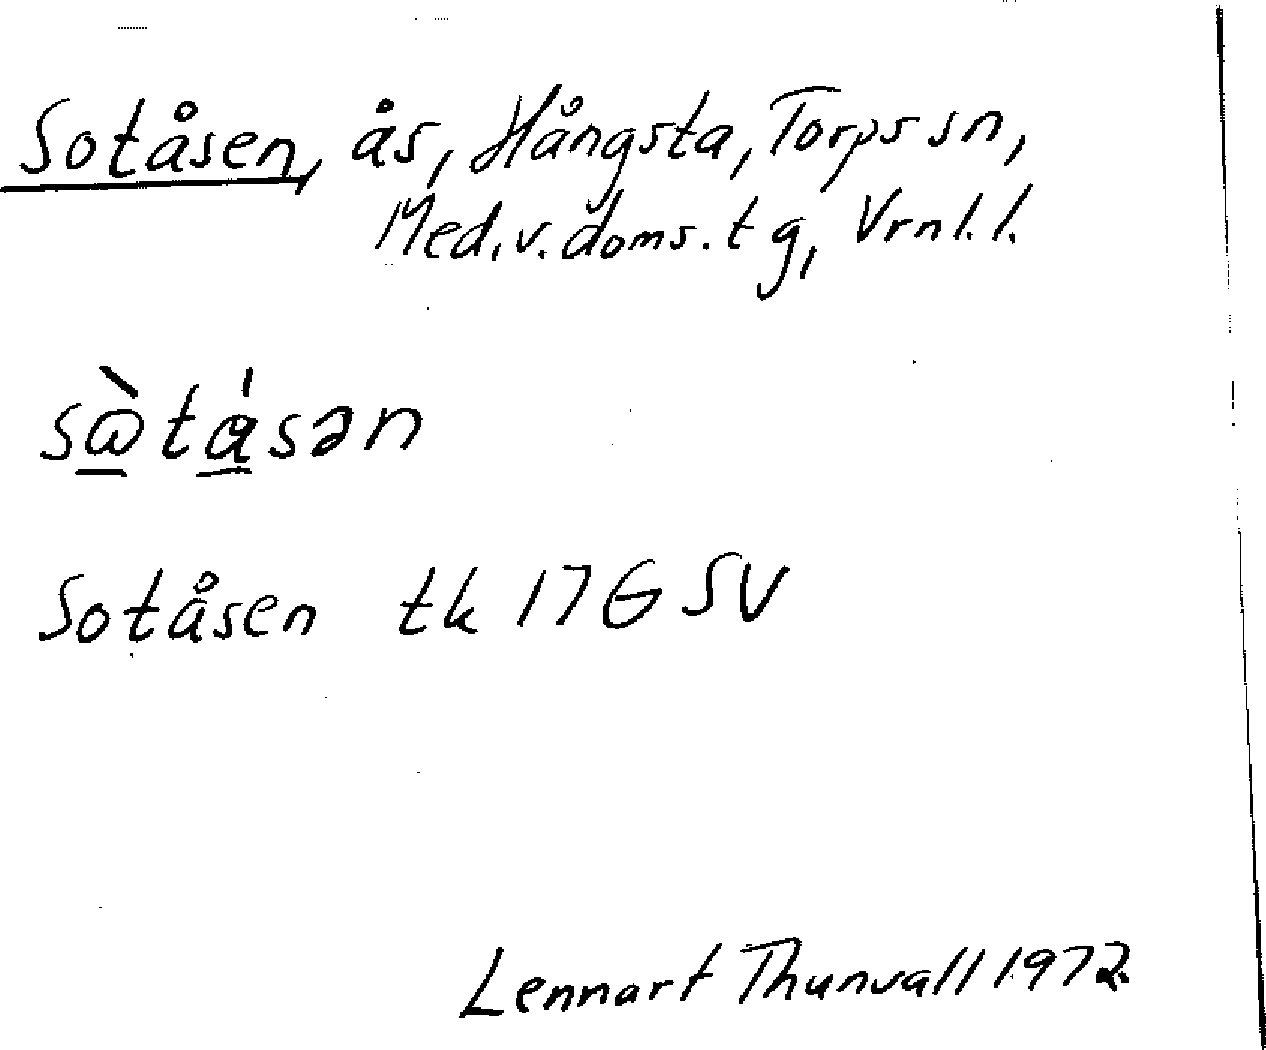 Sotåsen, ås, Hångsta, Torps sn,
Med. v. doms. tg, Vrnl. l.
sὼ̲tά̲sən
Sotåsen tk 17G SV
Lennart Thunvall 1972.